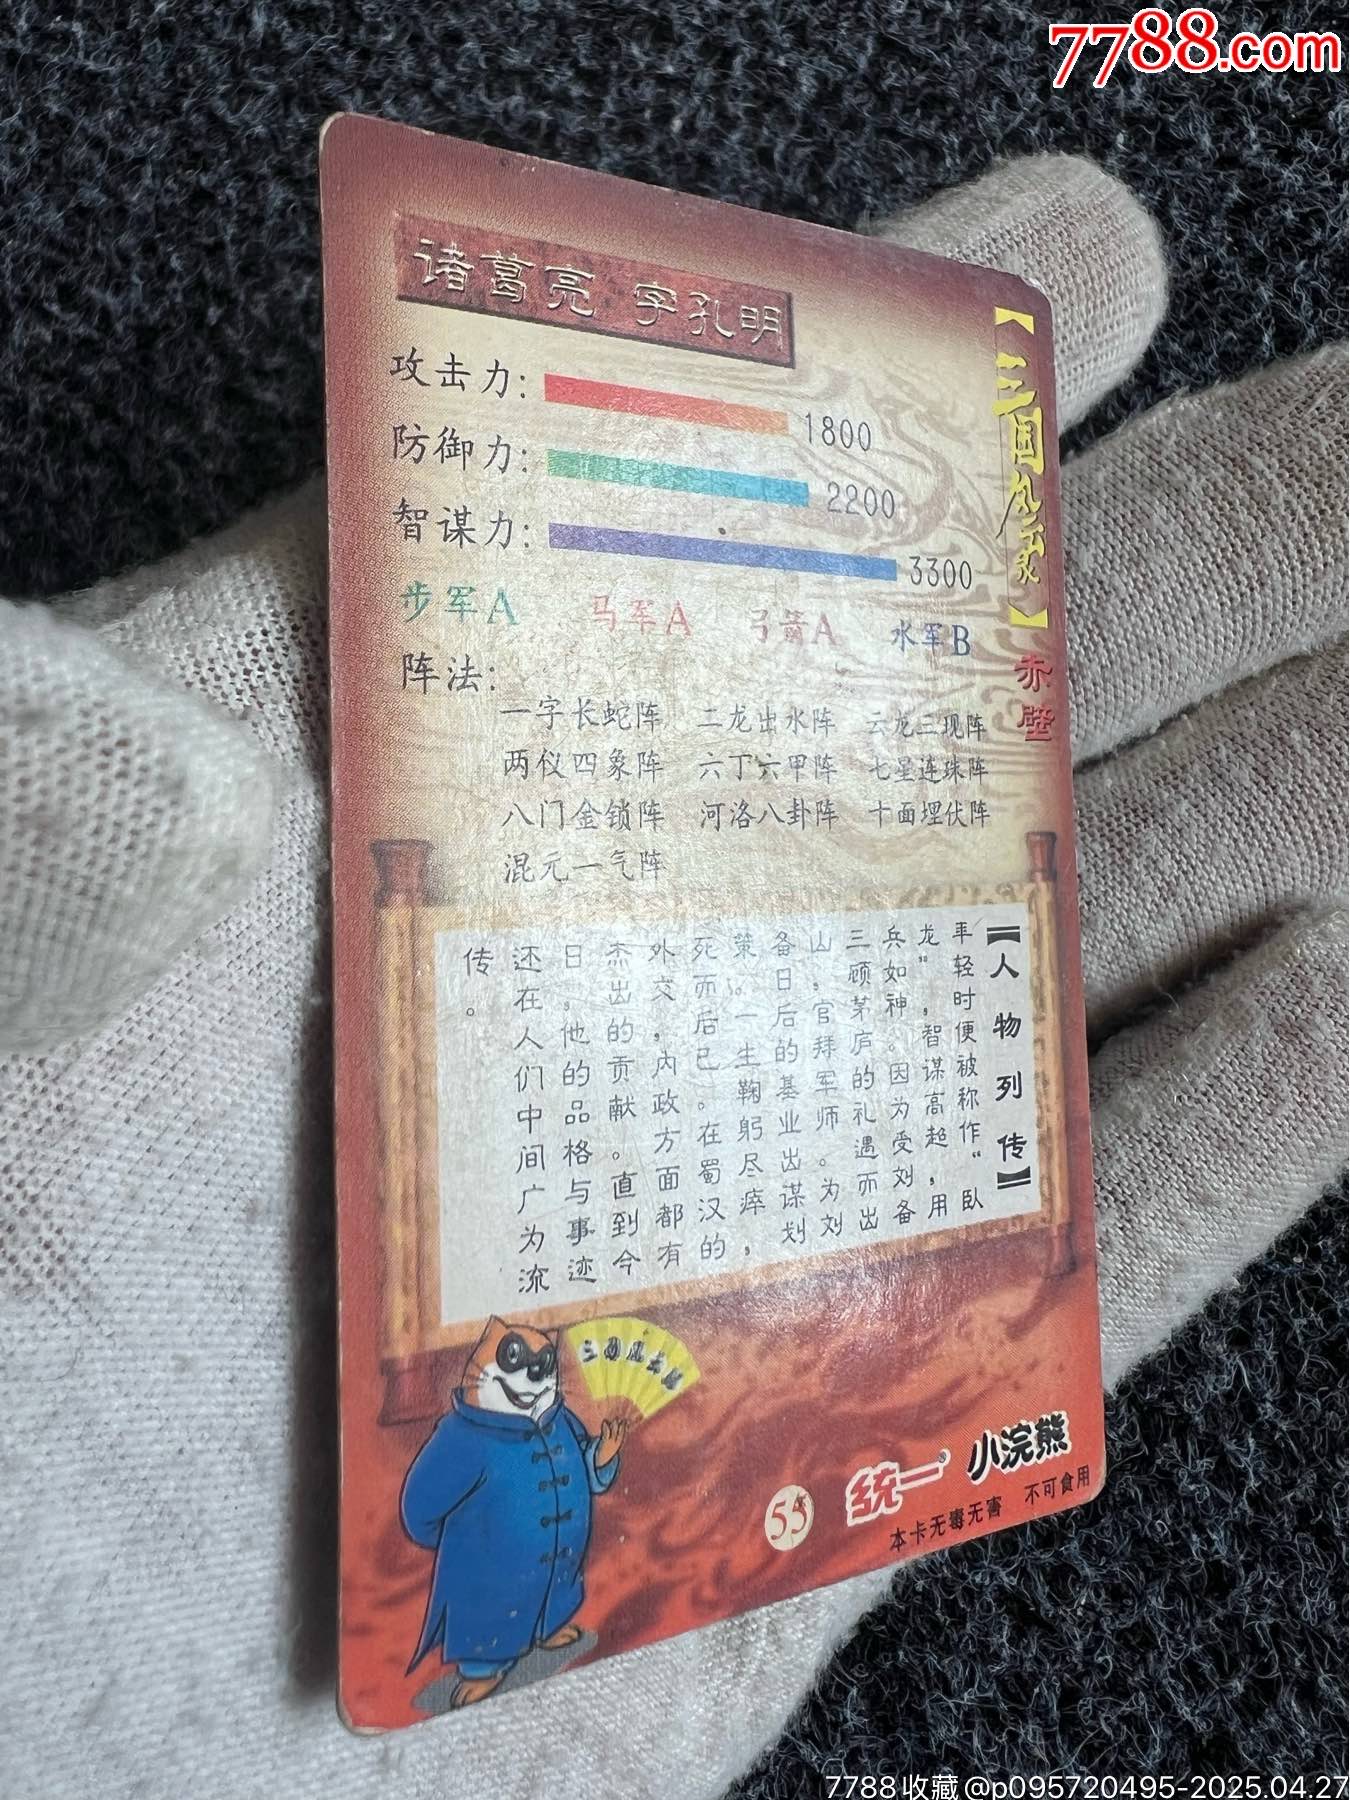 7788.com
诸葛亮 字孔明
【三国风云录】
赤壁
攻击力: 1800
防御力: 2200
智谋力: 3300
步军A 马军A 弓箭A 水军B
阵法:
一字长蛇阵 二龙出水阵 云龙三现阵
两仪四象阵 六丁六甲阵 七星连珠阵
八门金锁阵 河洛八卦阵 十面埋伏阵
混元一气阵
【人物列传】
年轻时便被称作“卧
龙”,智谋高超,用
兵如神。因为受刘备
三顾茅庐的礼遇而出
山,官拜军师。为刘
备日后的基业出谋划
策。一生鞠躬尽瘁,
死而后已。在蜀汉的
外交,内政方面都有
杰出的贡献。直到今
日,他的品格与事迹
还在人们中间广为流
传。
三国风云录
55
统一® 小浣熊
本卡无毒无害 不可食用
7788收藏@p095720495-2025.04.27